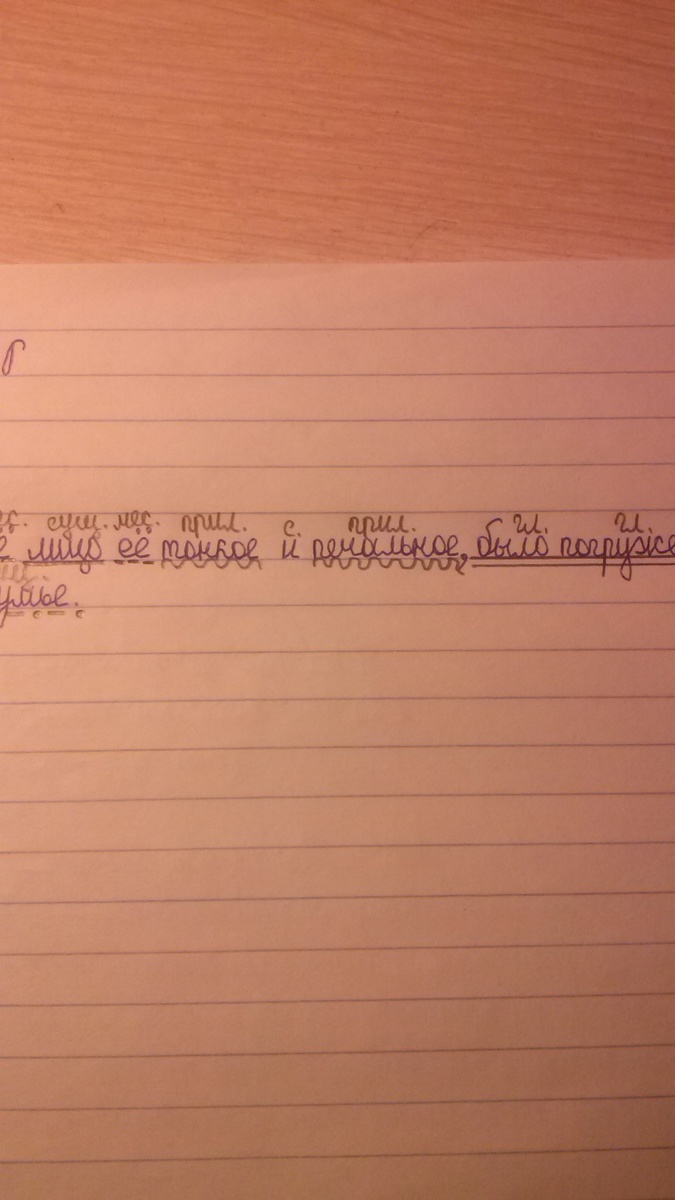 г
ес. сущ. мес. прил. с. прил. гл. гл.
е лицо её тонкое и печальное, было погруже
ущ.
умье.